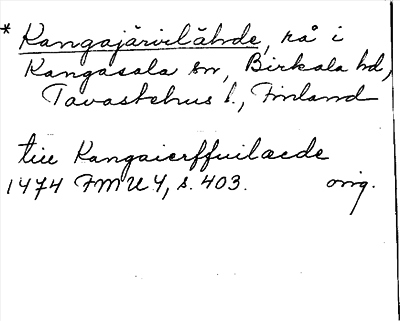 * Kangajärvilähde, rå i
Kangasala sn, Birkala hd,
Tavastehus l., Finland
till Kangaierffuilaede
1474 FMU 4, s. 403. orig.